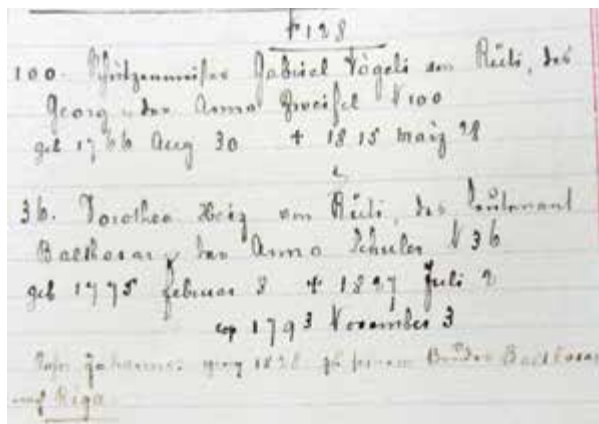 № 128
100. Schützenmeister Gabriel Vögeli von Rüti, des
Georg u der Anna Zweifel N 100
geb 1766 Aug 30 + 1815 März 28
36. Dorothea Heiz von Rüti, des Leutenant
Balthasar u der Anna Schuler N 36
geb 1775 Februar 3 + 1827 Juli 2
cop 1793 November 3
Sohn Johannes ging 1828 zu seinem Bruder Balthasar
nach Riga.